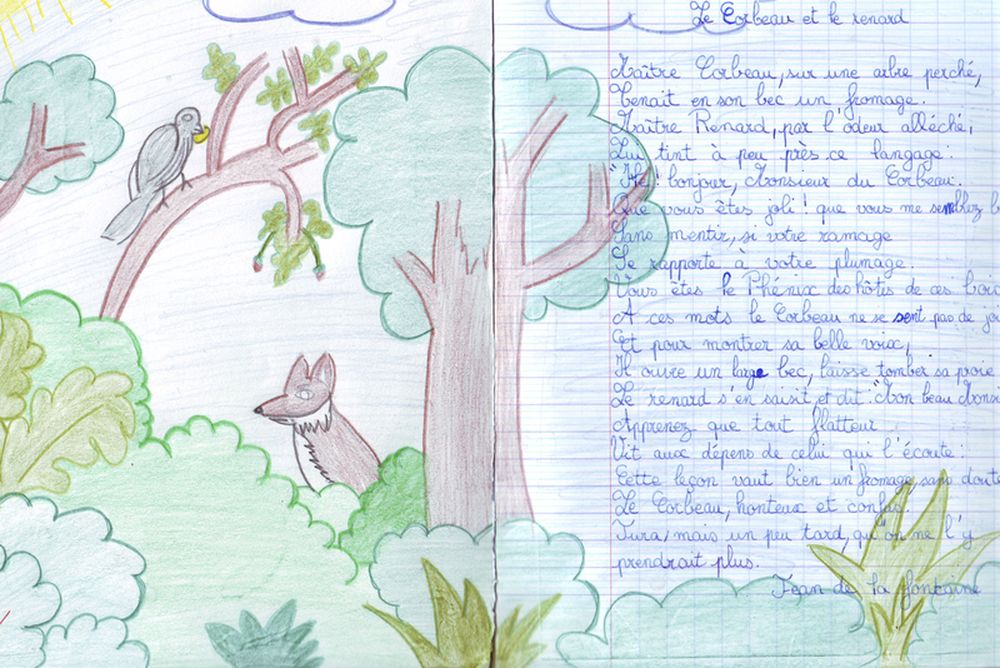 Le Corbeau et le renard
Maître Corbeau, sur une arbre perché,
Tenait en son bec un fromage.
Maître Renard, par l'odeur alléché,
Lui tint à peu près ce langage:
"Hé! bonjour, Monsieur du Corbeau.
Que vous êtes joli! que vous me semblez b
Sans mentir, si votre ramage
Se rapporte à votre plumage.
Vous êtes le Phénix des hôtis de ces boi
A ces mots le Corbeau ne se sent pas de joi
Et pour montrer sa belle voix,
Il ouvre un large bec, laisse tomber sa proie
Le renard s'en saisit et dit: "Mon beau Mons
Apprenez que tout flatteur
Vit aux dépens de celui qui l'écoute:
Cette leçon vaut bien un fromage, sans doute
Le Corbeau, honteux et confus.
Jura, mais un peu tard, qu'on ne l'y
prendrait plus.
Jean de la fontaine